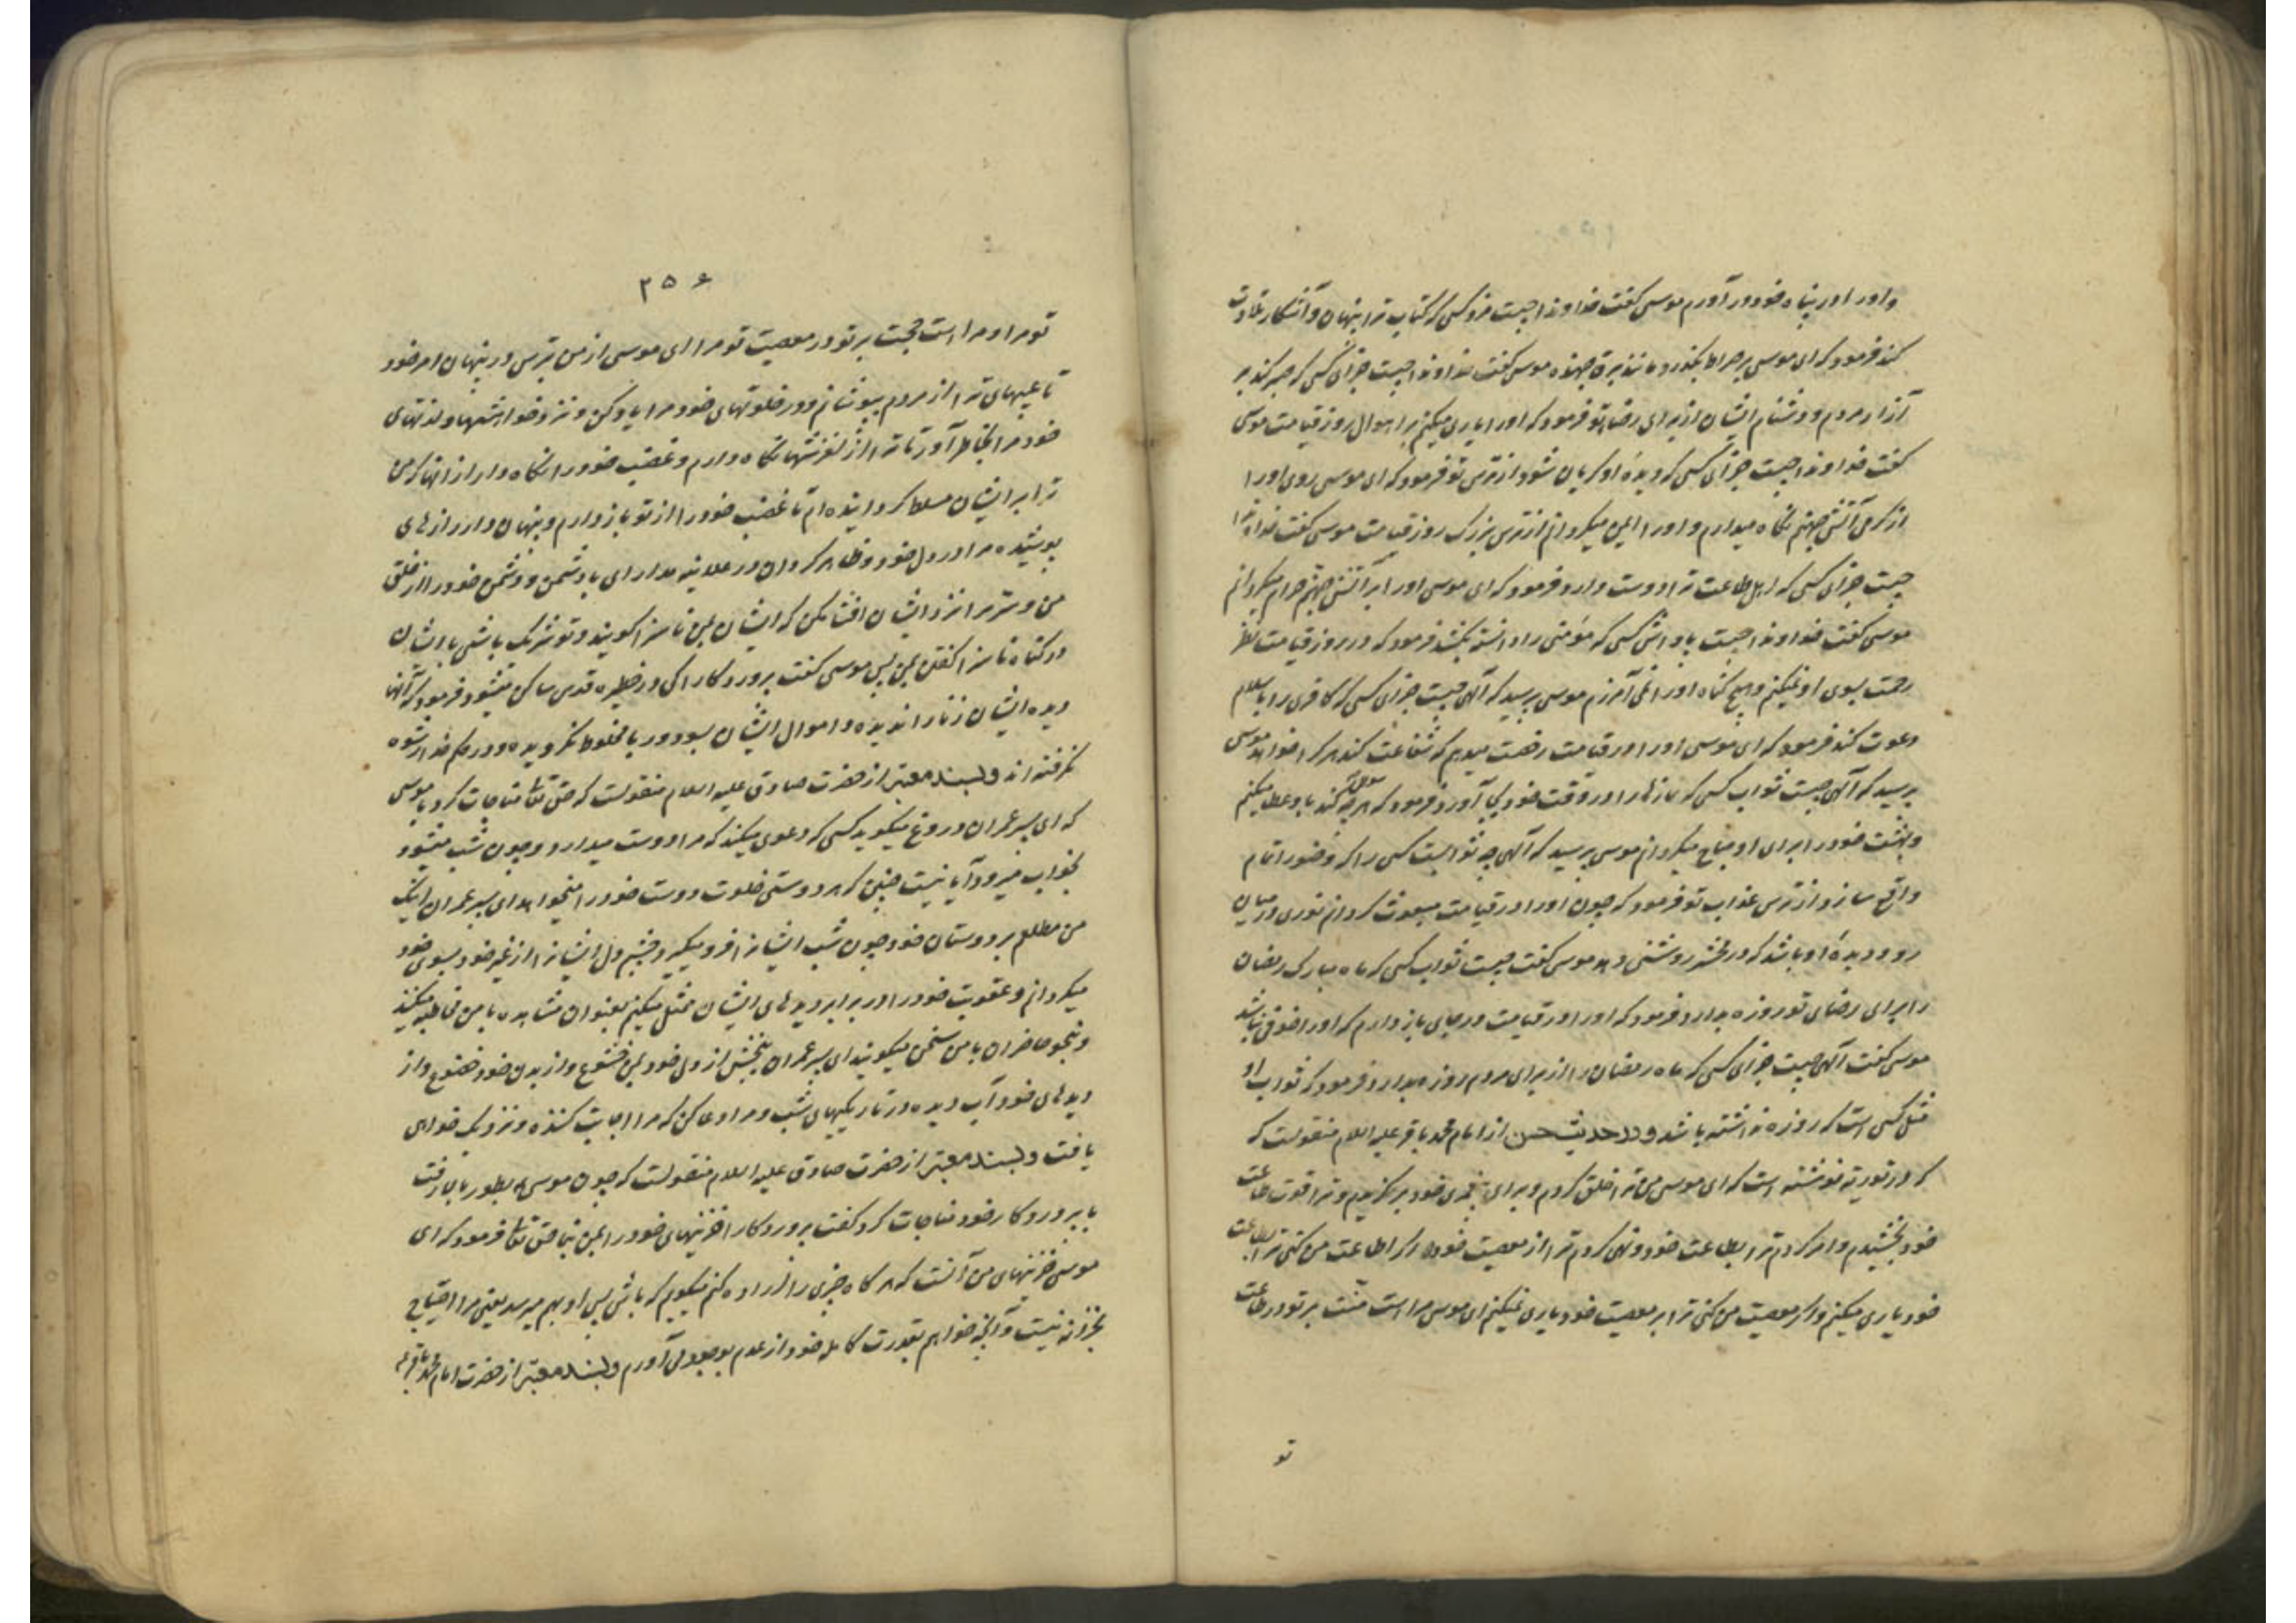 و او را در پناه خود در آورم موسی گفت خداوندا چیست مزد کسی که کتاب ترا پنهان و آشکار تلاوت
کند فرمود که ای موسی بر صراط بگذرد مانند برق جهنده موسی گفت خداوندا چیست جزای کسی که صبر کند بر
آزار مردم و دشنام ایشان از برای رضای تو فرمود که او را یاری میکنم بر اهوال روز قیامت موسی
گفت خداوندا چیست جزای کسی که دیدهٔ او گریان شود از ترس تو فرمود که ای موسی روی او را
از گرمی آتش جهنم نگاه میدارم و او را ایمن میگردانم از ترس بزرگ روز قیامت موسی گفت خداوندا
چیست جزای کسی که اهل طاعت ترا دوست دارد فرمود که ای موسی او را بر آتش جهنم حرام میگردانم
موسی گفت خداوندا چیست پاداش کسی که مؤمنی را دانسته بکشد فرمود که در روز قیامت نظر
رحمت بسوی او نمیکنم و هیچ گناه او را نمی آمرزم موسی پرسید که آلهی چیست جزای کسی که کافری را باسلام
دعوت کند فرمود که ای موسی او را در قیامت رخصت میدهم که شفاعت کند هر که را خواهد موسی
پرسید که آلهی چیست ثواب کسی که نمازها را در وقت خود بجا آورد فرمود که هر چه سوال کند باو عطا میکنم
و بهشت خود را برای او مباح میگردانم موسی پرسید که آلهی چه ثوابست کسی را که وضو را تمام
واقع سازد از ترس عذاب تو فرمود که چون او را در قیامت مبعوث گردانم نوری در میان
دو دیدهٔ او باشد که در محشر روشنی دهد موسی گفت چیست ثواب کسی که ماه مبارک رمضان
را برای رضای تو روزه بدارد فرمود که او را در قیامت در جای باز دارم که او را خوفی نباشد
موسی گفت آلهی چیست جزای کسی که ماه رمضان را از برای مردم روزه بدارد فرمود که ثواب او
مثل کسی است که روزه نداشته باشد و در حدیث حسن از امام محمد باقر علیه السلام منقولست که
که در توریة نوشته است که ای موسی من ترا خلق کردم و برای پیغمبری خود برگزیدم و ترا قوت طاعت
خود بخشیدم و امر کردم ترا بطاعت خود و نهی کردم ترا از معصیت خود اگر اطاعت من کنی ترا بر طاعت
خود یاری میکنم و اگر معصیت من کنی ترا بر معصیت خود یاری نمیکنم ای موسی مرا است منت بر تو در طاعت
تو
۳۵۶
تو مرا و مرا است حجت بر تو در معصیت تو مرا ای موسی از من بترس در پنهان امر خود
تا عیبهای ترا از مردم بپوشانم و در خلوتهای خود مرا یاد کن و نزد خواهشها و لذتهای
خود مرا بخاطر آور تا ترا از لغزشها نگاه دارم و غضب خود را نگاه دار از آنها که من
ترا بر ایشان مسلط گردانیده ام تا غضب خود را از تو باز دارم و پنهان دار رازهای
پوشیده مرا در دل خود و ظاهر گردان در علانیه مدارای با دشمن و دشمن خود را از خلق
من و سر مرا نزد ایشان افشا مکن که ایشان بمن ناسزا گویند و تو شریک باشی با ایشان
در گناه ناسزا گفتن بمن پس موسی گفت پروردگارا کی در حظیره قدس ساکن میشود فرمود که آنها
دیده ایشان زنا را ندیده و اموال ایشان بسود و ربا مخلوط نگردیده و در حکم خدا رشوه
نگرفته اند و بسند معتبر از حضرت صادق علیه السلام منقولست که حق تعالی مناجات کرد با موسی
که ای پسر عمران دروغ میگوید کسی که دعوی میکند که مرا دوست میدارد و چون شب میشود
بخواب میرود آیا نیست چنین که هر دوستی خلوت دوست خود را میخواهد ای پسر عمران اینک
من مطلع بر دوستان خود چون شب ایشانرا فرو میگیرد چشم دل ایشانرا از غیر خود بسوی خود
میگردانم و عقوبت خود را در برابر دیدهای ایشان ممثل میکنم بعنوان مشاهده با من مخاطبه میکنند
و بنحو حاضران با من سخن میگویند ای پسر عمران ببخش از دل خود بمن خشوع و از بدن خود خضوع و از
دیدهای خود آب دیده در تاریکیهای شب و مرا دعا کن که مرا اجابت کننده و نزدیک خواهی
یافت و بسند معتبر از حضرت صادق علیه السلام منقولست که چون موسی بطور بالا رفت
با پروردگار خود مناجات کرد گفت پروردگارا خزینهای خود را بمن بنما حق تعالی فرمود که ای
موسی خزینهای من آنست که هر گاه چیزی را اراده کنم میگویم که باش پس او بهم میرسد یعنی مرا احتیاج
بخزانه نیست و آنچه خواهم بقدرت کامله خود از عدم بوجود می آورم و بسند معتبر از حضرت امام محمد باقر